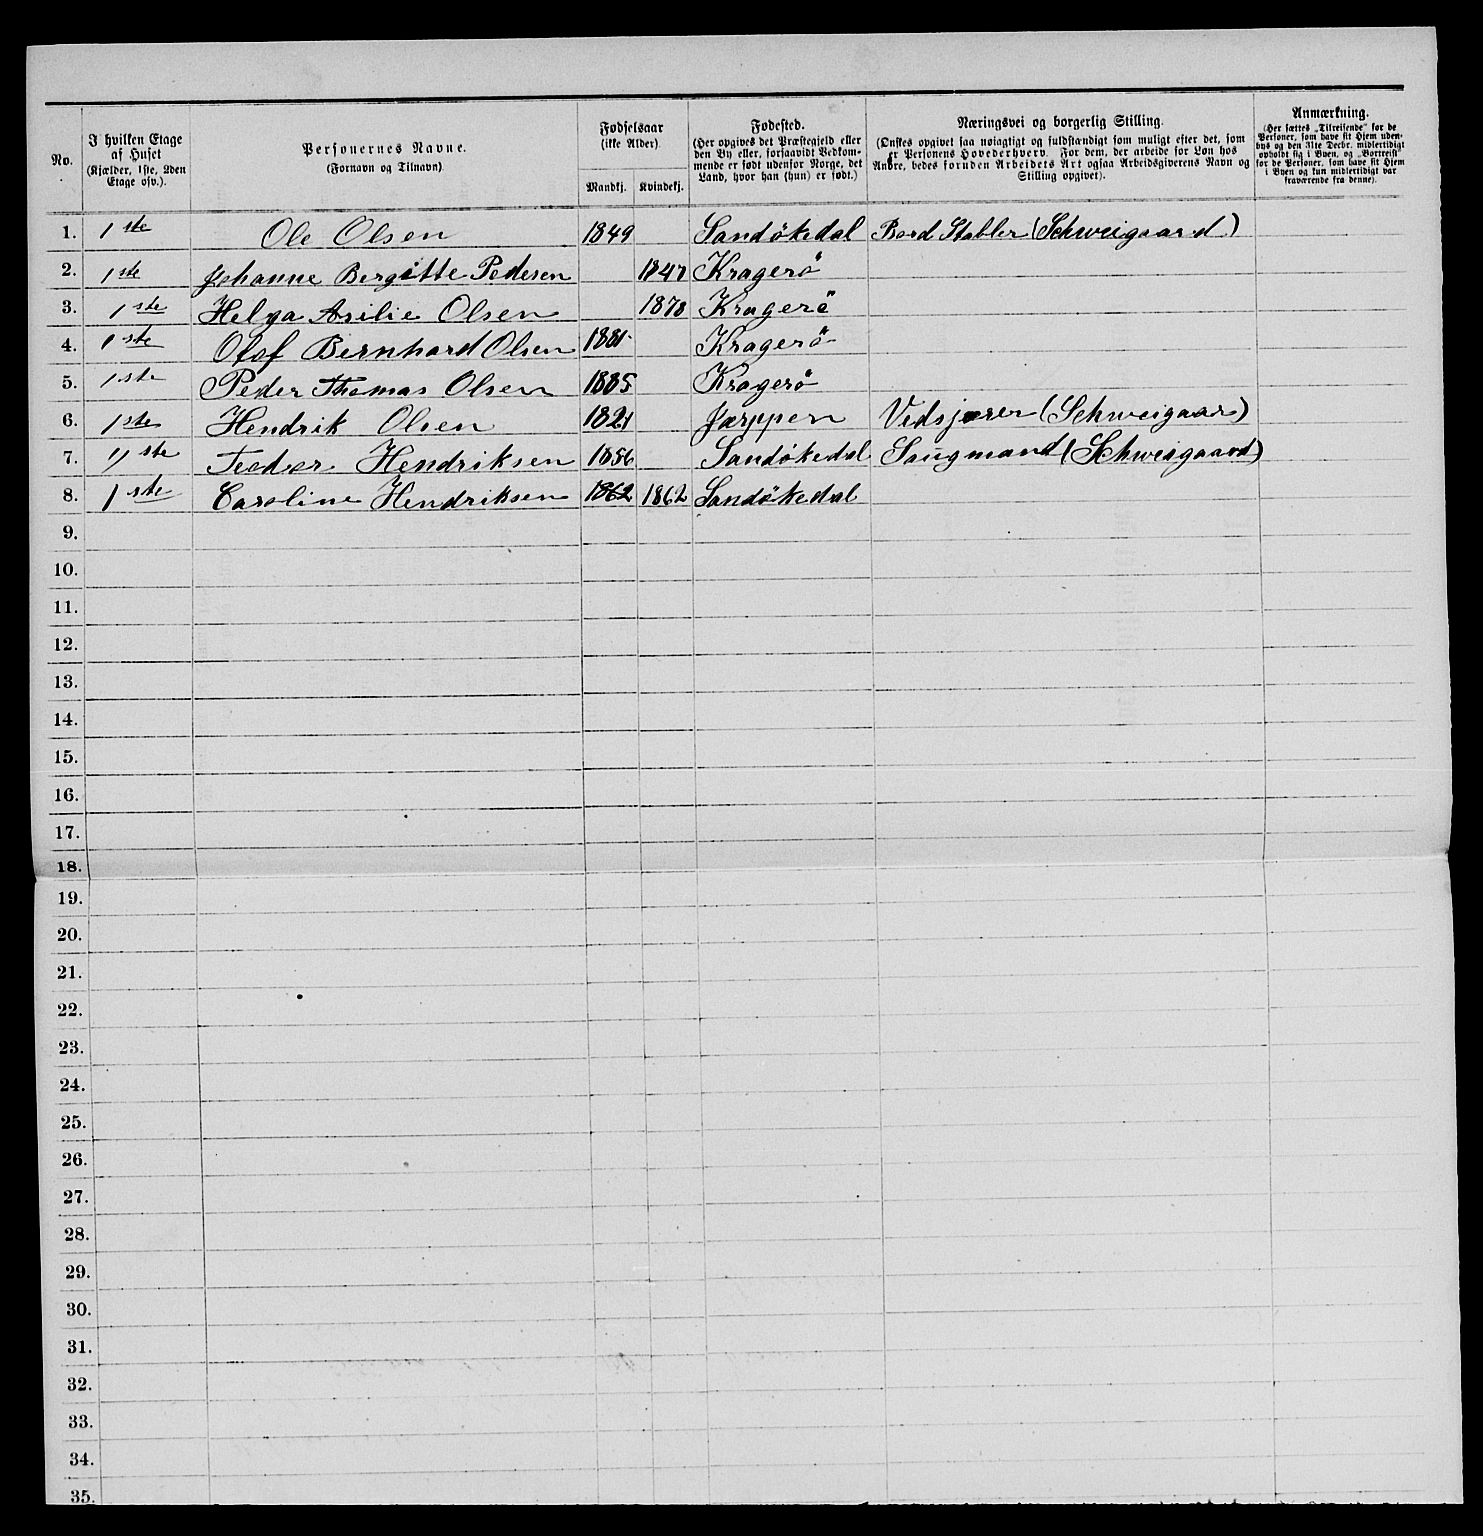 No. | I hvilken Etage af Huset (Kjælder, 1ste, 2den Etage osv.). | Personernes Navne. (Fornavn og Tilnavn) | Fødselsaar (ikke Alder). Mandkj. | Kvindekj. | Fødested. (Her opgives det Præstegjeld eller den By eller, forsaavidt Vedkommende er født udenfor Norge, det Land, hvor han (hun) er født.) | Næringsvei og borgerlig Stilling. (Ønskes opgivet saa nøiagtigt og fuldstændigt som muligt efter det, som er Personens Hovederhverv. For dem, der arbeide for Løn hos Andre, bedes foruden Arbeidets Art ogsaa Arbeidsgiverens Navn og Stilling opgivet). | Anmærkning. (Her sættes „Tilreisende“ for de Personer, som have sit Hjem udenbys og den 31te Decbr. midlertidigt opholdt sig i Byen, og „Bortreist“ for de Personer, som have sit Hjem i Byen og kun midlertidigt var fraværende fra denne).
1. 1ste Ole Olsen 1849 Sandökedal Bord Stabler (Schweigaard)
2. 1ste Johanne Bergitte Pedesen 1847 Kragerö
3. 1ste Helga Asilie Olsen 1878 Kragerö
4. 1ste Olof Bernhard Olsen 1881 Kragerö
5. 1ste Peder Thomas Olsen 1885 Kragerö
6. 1ste Hendrik Olsen 1821 Jærppen Vedsjærer (Schweigaar)
7. 1ste Teodor Hendriksen 1856 Sandökedal Saugmand (Schweigaard)
8. 1ste Caroline Hendriksen 1862 1862 Sandökedal
9.
10.
11.
12.
13.
14.
15.
16.
17.
18.
19.
20.
21.
22.
23.
24.
25.
26.
27.
28.
29.
30.
31.
32.
33.
34.
35.